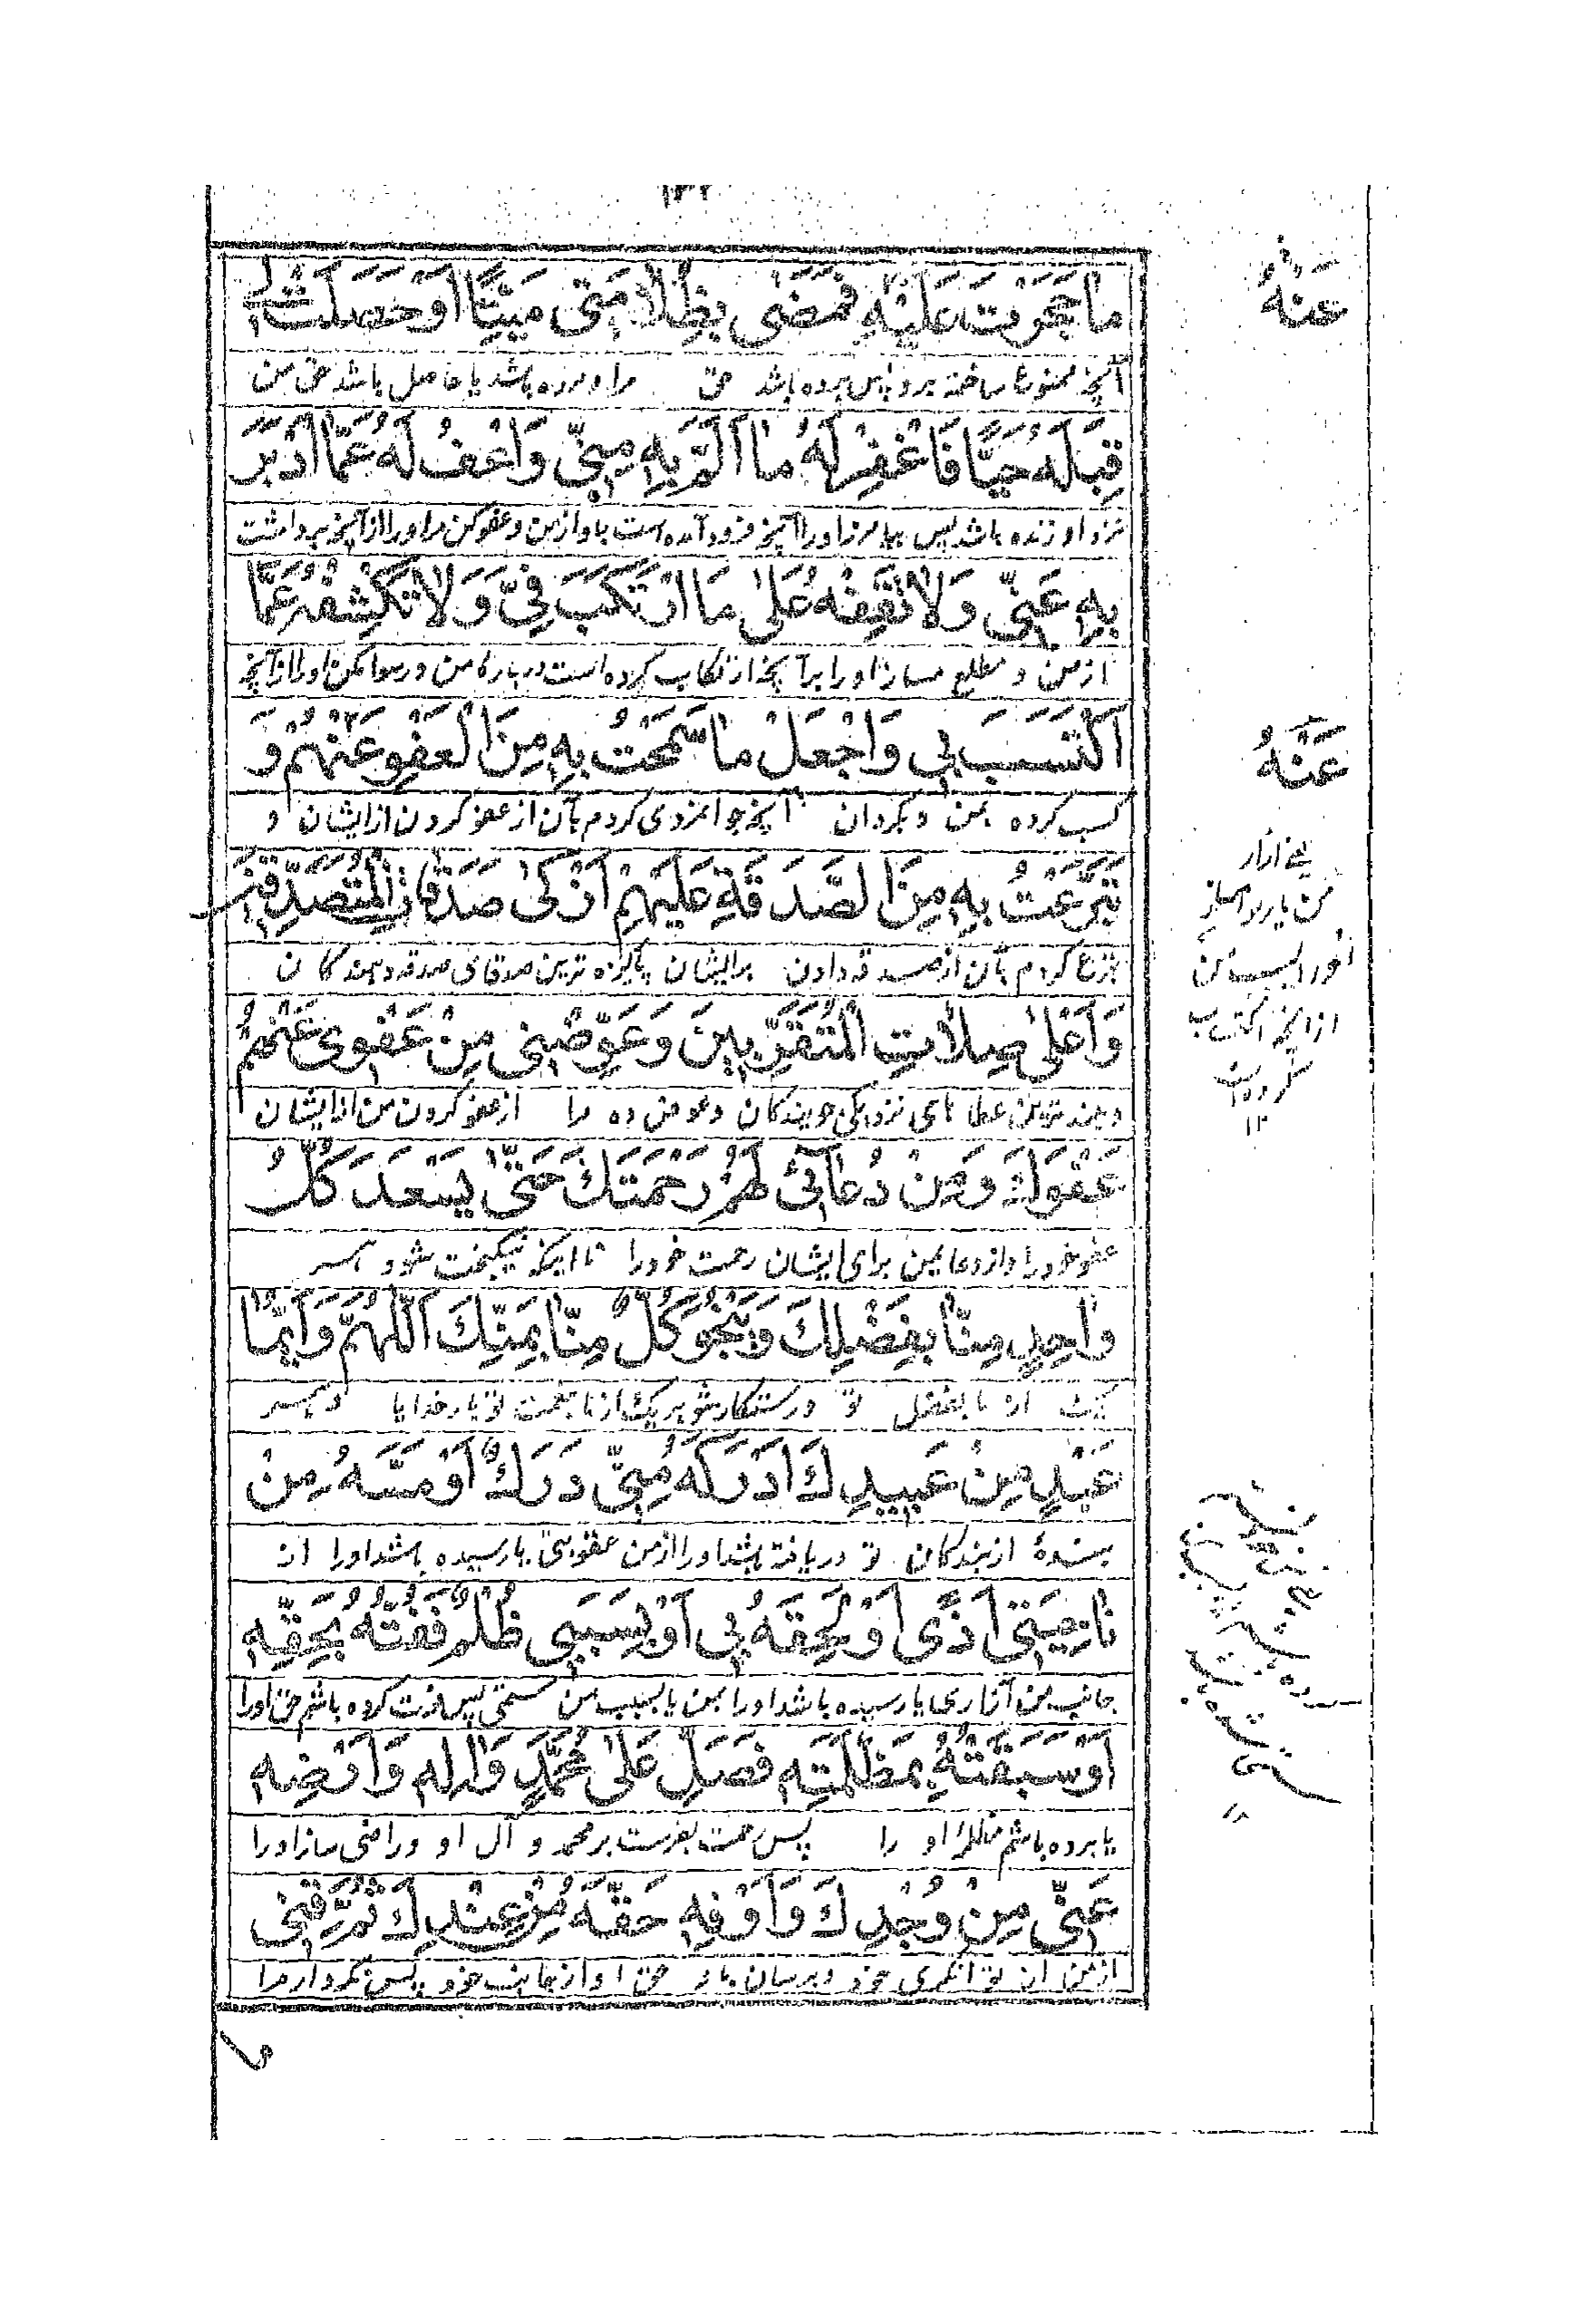 ما حَجَرْتَ عَلَيْهِ فَمَضٰى بِظُلَامَتِي مَيِّتًا اَوْ حَصَلَتْ لِي
آنچه ممنوع ساخته بر او پس برده باشد حق مرا و مرده باشد یا حاصل باشد حق من
قِبَلَهُ حَيًّا فَاغْفِرْ لَهُ ما اَلَمَّ بِهِ مِنِّي وَاعْفُ لَهُ عَمَّا اَدْبَرَ
نزد او زنده باشد پس بیامرز او را آنچه فرود آمده است باو از من و عفو کن مر او را از آنچه برداشت
بِهِ عَنِّي وَلا تَقِفْهُ عَلىٰ مَا ارْتَكَبَ فِيَّ وَلا تَكْشِفْهُ عَمَّا
از من و مطلع مساز او را بر آنچه ارتکاب کرده است درباره من و رسوا مکن او را از آنچه
اكْتَسَبَ بِي وَاجْعَلْ ما سَمَحْتُ بِهِ مِنَ الْعَفْوِ عَنْهُمْ وَ
کسب کرده بمن و بگردان آنچه جوانمردی کردم بآن از عفو کردن از ایشان و
تَبَرَّعْتُ بِهِ مِنَ الصَّدَقَةِ عَلَيْهِمْ اَزْكىٰ صَدَقَاتِ الْمُتَصَدِّقِينَ
تبرع کردم بآن از صدقه دادن بر ایشان پاکیزه ترین صدقهای صدقه دهندگان
وَاَعْلىٰ صِلَاتِ الْمُتَقَرِّبِينَ وَعَوِّضْنِي مِنْ عَفْوِي عَنْهُمْ
و بلند ترین عطا های نزدیکی جویندگان و عوض ده مرا از عفو کردن من از ایشان
عَفْوَكَ وَمِنْ دُعَائِي لَهُمْ رَحْمَتَكَ حَتّىٰ يَسْعَدَ كُلُّ
عفو خود را و از دعا یمن برای ایشان رحمت خود را تا اینکه نیکبخت شود هر
واحِدٍ مِنَّا بِفَضْلِكَ وَيَنْجُوَ كُلٌّ مِنَّا بِمَنِّكَ اَللّٰهُمَّ وَاَيُّمَا
یک از ما بفضل تو و رستگار شود هر یک از ما بنعمت تو بار خدایا و هر
عَبْدٍ مِنْ عَبِيدِكَ اَدْرَكَهُ مِنِّي دَرَكٌ اَوْ مَسَّهُ مِنْ
بنده از بندگان تو دریافته باشد او را از من عقوبتی یا رسیده باشد او را از
نَاحِيَتِي اَذًى اَوْ لَحِقَهُ بِي اَوْ بِسَبَبِي ظُلْمٌ فَفُتُّهُ بِحَقِّهِ
جانب من آزاری یا رسیده باشد او را بمن یا بسبب من ستمی پس فوت کرده باشم حق او را
اَوْ سَبَقْتُهُ بِمَظْلَمَتِهِ فَصَلِّ عَلىٰ مُحَمَّدٍ وَآلِهِ وَاَرْضِهِ
یا برده باشم مظلمه او را پس رحمت بفرست بر محمد و آل او و راضی ساز او را
عَنِّي مِنْ وُجْدِكَ وَاَوْفِهِ حَقَّهُ مِنْ عِنْدِكَ ثُمَّ قِنِي
از من از توانگری خود و برسان باو حق او از جانب خود پس نگهدار مرا
عنهُ
عَنْهُ
۱۲